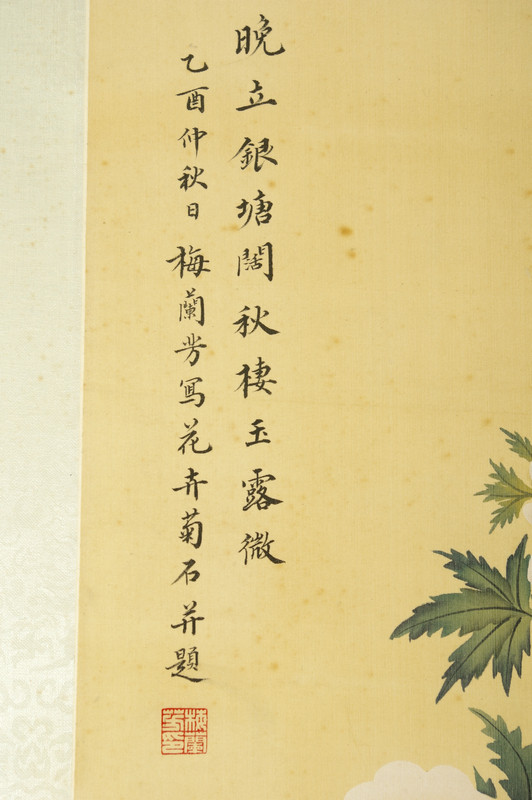 晚立銀塘闊秋棲玉露微
乙酉仲秋日梅蘭芳寫花卉菊石并題
梅蘭芳印